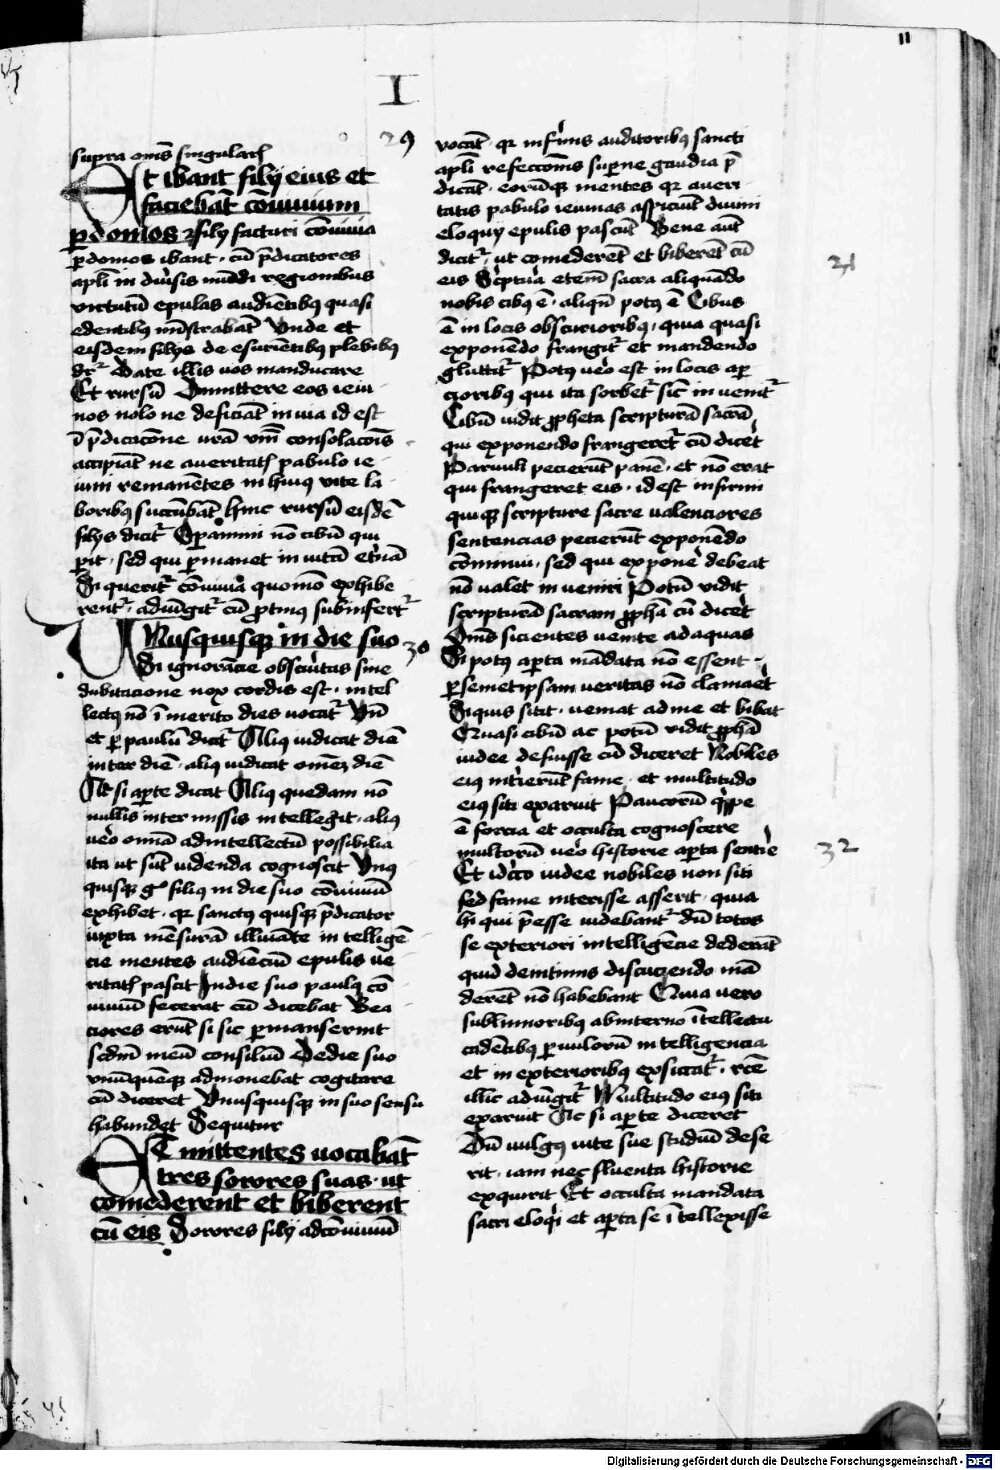 11
I
29
supra om̄s singularit̄
Et ibant filij eius et
faciebāt cōuiuium
ꝑ domos filij facturi cōuiuia
ꝑ domos ibant · cū p̄dicatores
apl̄i in diu̓sis mūdi regionibus
virtutū epulas audiētibꝰ quasi
edentibꝰ mīstrabāt Vnde et
eisdem filijs de esurientibꝰ plebibus
dr̄ Date illis uos manducare
Et rursū Dimittere eos ieiu
nos nolo ne deficiāt in uia id est
ī p̄dicacōne urā v̄m consolacōis
accipiāt ne a ueritatis pabulo ie
iuni remanētes in huiꝰ vite la
boribus succūbāt hinc rursū eisdē
filijs dicit̄ Operamini nō cibū qui
ꝑit · sed qui ꝑmanet in uitā et̓nā
Si querit̄ cōuiuia quomō exhibe
rent̄ · adiūgit̄ cū ꝓtinus subinfert̄
Unusquisqꝫ in die suo
30
Si ignorācie obscu̓itas sine
dubitacione nox cordis est · intel
lectꝰ nō īmerito dies uocat̄ Vn̄
et ꝑ paulū dicit̄ Aliꝰ iudicat diē
inter diē · aliꝰ iudicat omēꝫ diē
Ac si aꝑte dicat Aliꝰ quedam nō
nullis intermissis intellegit · aliꝰ
ue̓o omnia ad intellectū possibilia
ita ut sūt uidenda cognoscit Vnꝰ
quisqꝫ gͦ filiꝰ in die suo cōuiuiū
exhibet · qr sanctꝰ quisqꝫ p̄dicator
iuxta mēsurā illuīate intelligē
cie mentes audiēciū epulis ue
ritatis pascit In die suo paulꝰ cō
uiuiū fecerat cū dicebat Bea
ciores erūt si sic ꝑmanserint
scdm̄ meū consiliū De die suo
vnūquēqꝫ admonebat cogitare
cū diceret Vnusquisqꝫ in suo sensu
habundet Sequitur
Et mittentes uocabāt
tres sorores suas · ut
comederent et biberent
cū eis Sorores filij ad cōuiuiū
vocāt · qr infi̓mis auditoribꝰ sancti
apl̄i refecconis suꝑne gaudia p̄
dicāt · eorūqꝫ mentes qr a ueri
tatis pabulo ieiunas aspiciūt diuini
eloquij epulis pascūt Bene aut̄
dicit̄ · ut comederēt et biberēt cū
eis Sc̓ptu̓a etem̄ sacra aliquādo
nobis cibꝰ ē · aliqn̄ potꝰ ē Cibus
ē in locis obscurioribꝰ · quia quasi
exponēdo frangit̄ et mandendo
gluttit̄ Potꝰ ue̓o est in locis aꝑ
cioribꝰ qui ita sorbet̄ sic̄ inuenit̄
Cibū uidit ꝓpheta scripturā sacrā
qui exponendo frangeret̄ cū dice̓t
Paruuli pecierūt panē · et nō erat
qui frangeret eis · id est infirmi
quiqꝫ scripture sacre ualenciores
sentencias pecierūt exponēdo
cōminui · sed qui expone̓ debeat
nō ualet inueniri Potū uidit
scripturā sacram ꝓphā cū dice̓t
Om̄s sicientes uenite ad aquas
Si potꝰ aꝑta mādata nō essent ·
ꝑ semetipsam ueritas nō clamae̓t
Siquis sitit · ueniat ad me et bibat
Quasi cibū ac potū vidit ꝓphā
iudee defuisse cū diceret Nobiles
eiꝰ int̓ierūt fame · et multitudo
eiꝰ siti exaruit Paucorū q̓ppe
ē forcia et occulta cognoscere
multorū ue̓o historie aꝑta senti̓e
Et idc̓co iudee nobiles non siti
sed fame interisse asserit · quia
hi qui p̄esse uidebant̄ dū totos
se exteriori intelligēcie dederāt
quid de intimis discuciendo mā
derēt nō habebant Quia uero
sublimioribꝰ ab interno ītellectu
cadētibꝰ ꝑuulorū intelligencia
et in exterioribꝰ exsiccat̄ · rcē
illic adiūgit̄ Multitudo eiꝰ siti
exaruit Ac si aꝑte diceret
Dū uulgꝰ uite sue studiū dese
rit · iam nec fluenta historie
exquirit Et occulta mandata
sacri eloq̓i et aꝑta se ītellexisse
31
32
Digitalisierung gefördert durch die Deutsche Forschungsgemeinschaft - DFG